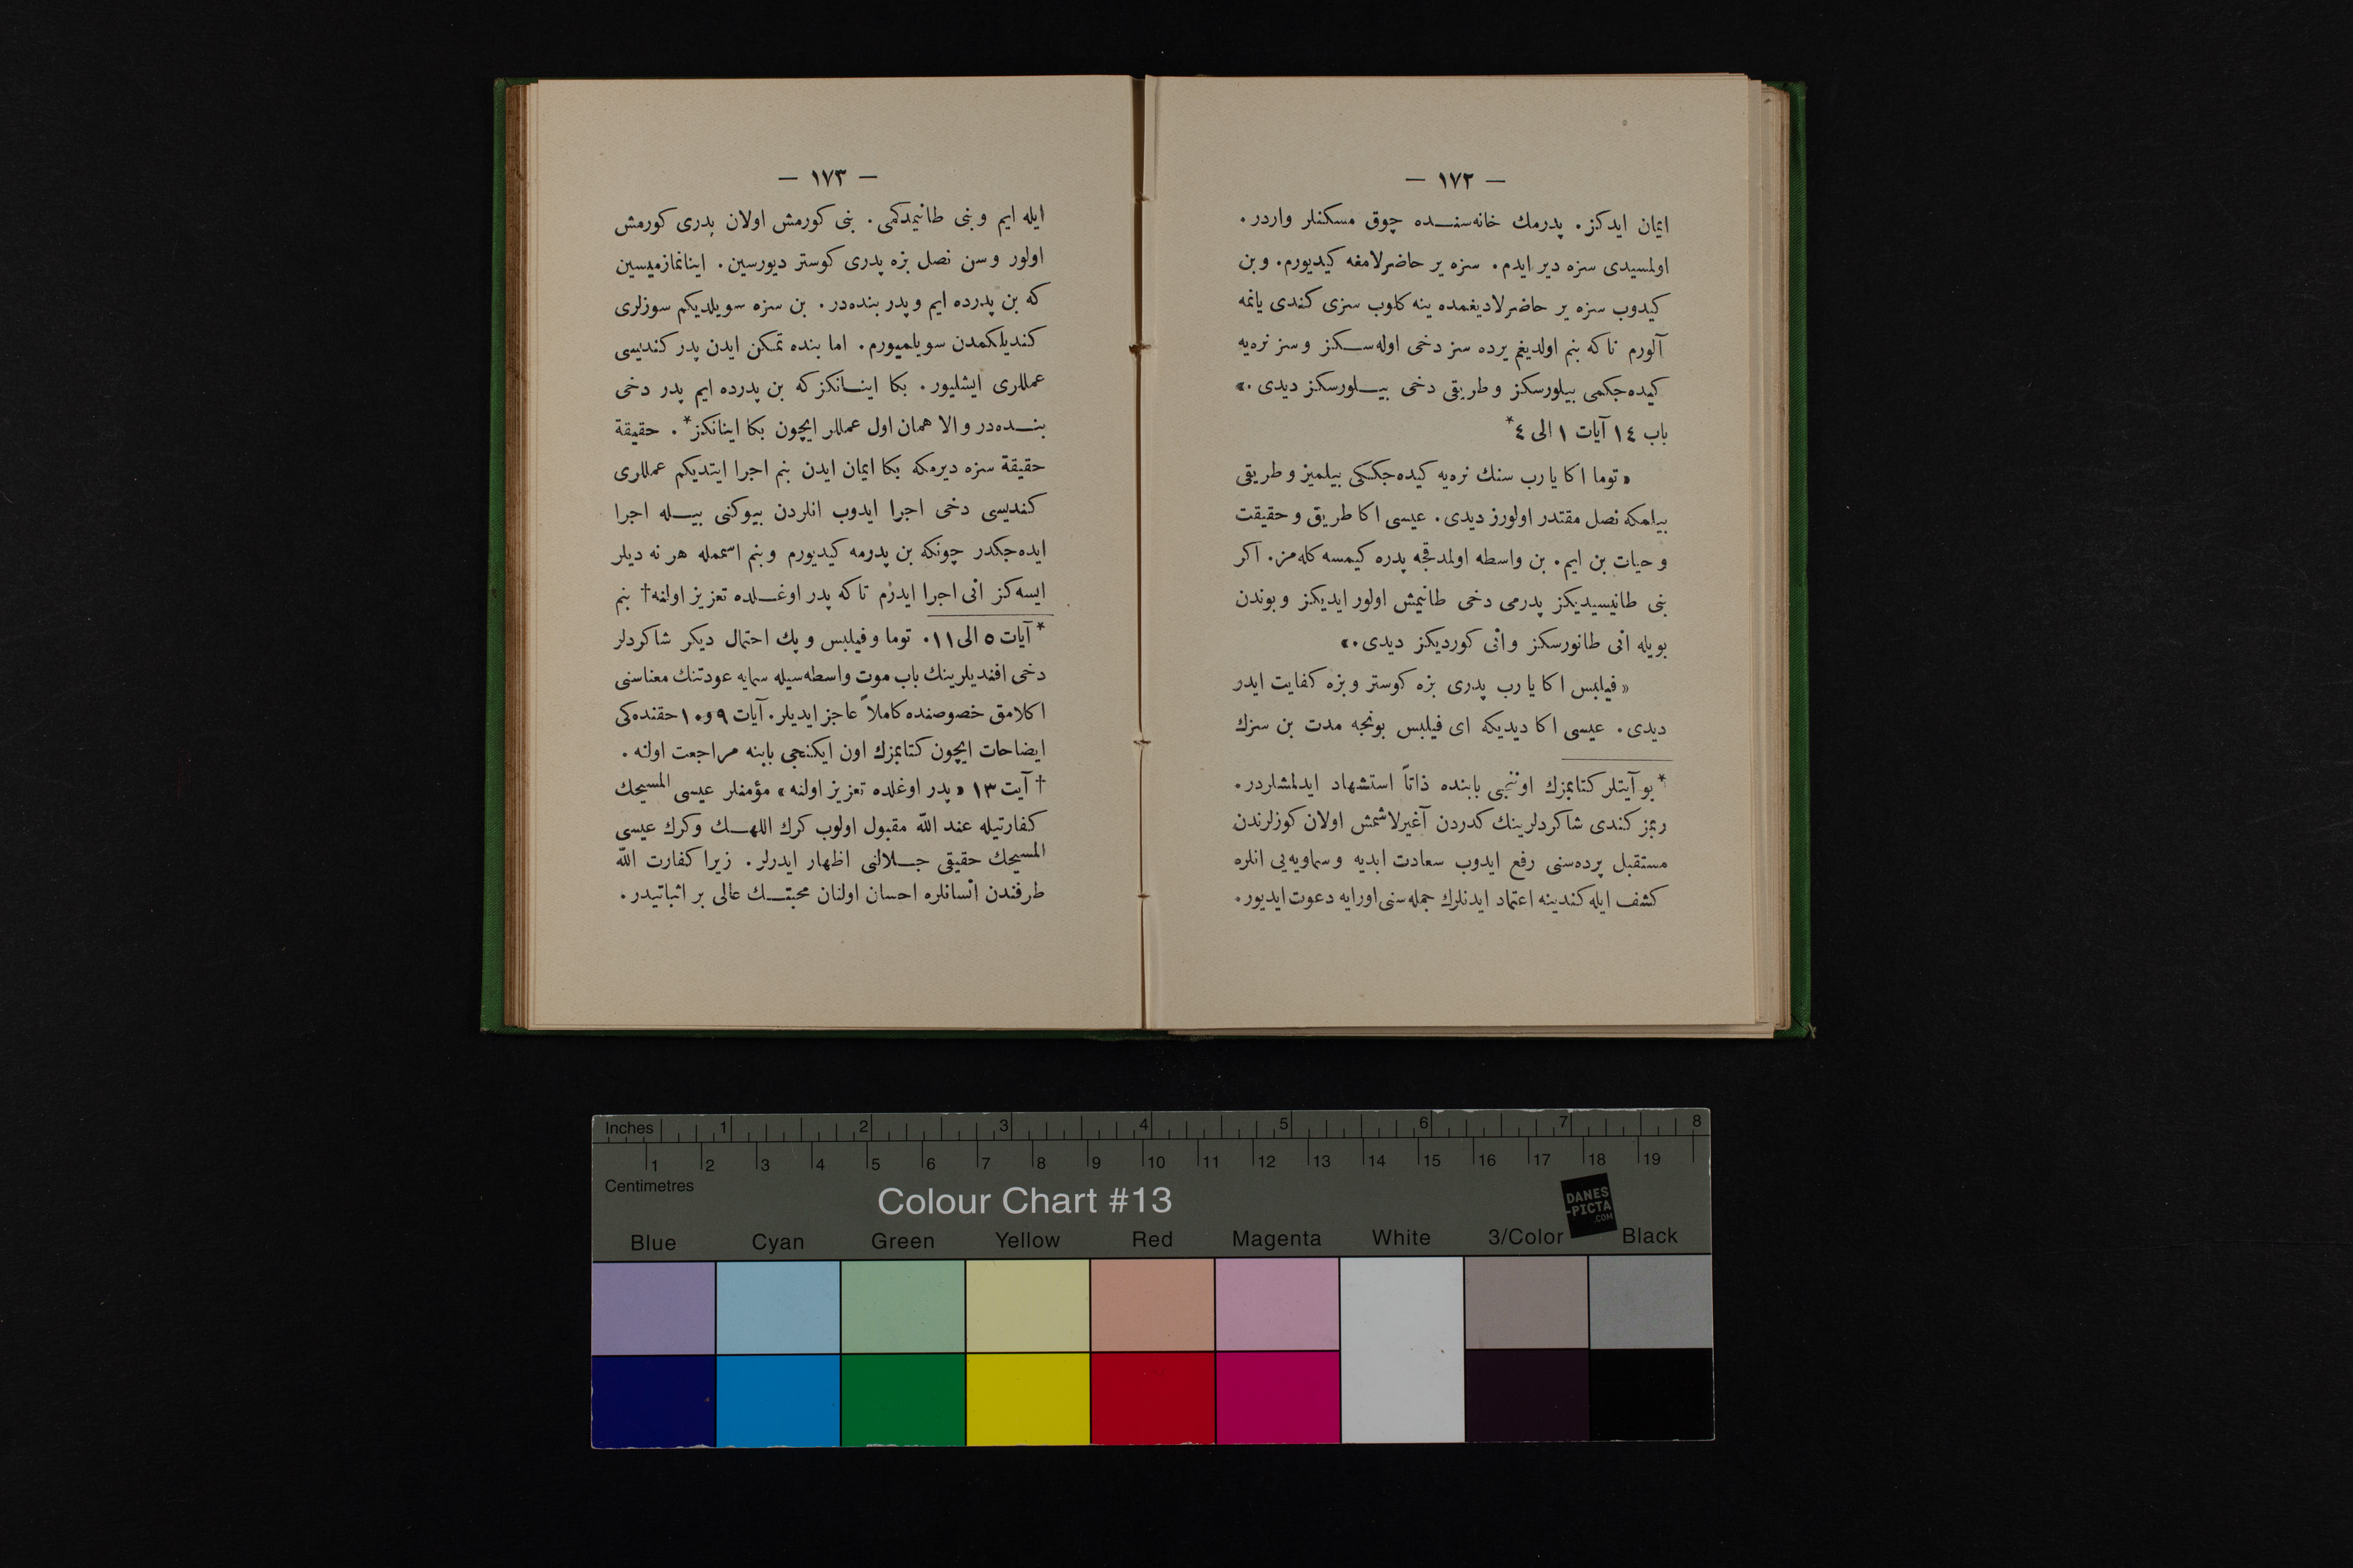 — ١٧٢ —
ايمان ايدكز. پدرمك خانه‌سنده چوق مسكنلر واردر.
اولمسيدى سزه دير ايدم. سزه ير حاضرلامغه كيديورم. و بن
كيدوب سزه ير حاضرلاديغمده ينه كلوب سزى كندى يانمه
آلورم تا كه بنم اولديغم يرده سز دخى اوله‌سكز و سز نره‌يه
كيده‌جكمى بيلورسكز و طريقى دخى بيلورسكز ديدى.»
باب ١٤ آيات ١ الى ٤*
«توما اكا يا رب سنك نره‌يه كيده‌جككى بيلميز و طريقى
بيلمكه نصل مقتدر اولورز ديدى. عيسى اكا طريق و حقيقت
و حيات بن ايم. بن واسطه اولمدقجه پدره كيمسه كله‌مز. اكر
بنى طانيسيديكز پدرمى دخى طانيمش اولور ايديكز و بوندن
بويله انى طانورسكز و انى كورديكز ديدى.»
«فيلبس اكا يا رب پدرى بزه كوستر و بزه كفايت ايدر
ديدى. عيسى اكا ديديكه اى فيلبس بونجه مدت بن سزك
* بو آيتلر كتابمزك اوننجى بابنده ذاتاً استشهاد ايدلمشلردر.
ربمز كندى شاكردلرينك كدردن آغيرلاشمش اولان كوزلرندن
مستقبل پرده‌سنى رفع ايدوب سعادت ابديه و سماويه‌يى انلره
كشف ايله كندينه اعتماد ايدنلرك جمله‌سنى اورايه دعوت ايديور.
— ١٧٣ —
ايله ايم و بنى طانيمدكمى. بنى كورمش اولان پدرى كورمش
اولور و سن نصل بزه پدرى كوستر ديورسين. اينانمازميسين
كه بن پدرده ايم و پدر بنده‌در. بن سزه سويلديكم سوزلرى
كنديلكمدن سويلميورم. اما بنده تمكن ايدن پدر كنديسى
عمللرى ايشليور. بكا اينانكز كه بن پدرده ايم پدر دخى
بنده‌در و الا همان اول عمللر ايچون بكا اينانكز*. حقيقة
حقيقة سزه ديرمكه بكا ايمان ايدن بنم اجرا ايتديكم عمللرى
كنديسى دخى اجرا ايدوب انلردن بيوكنى بيله اجرا
ايده‌جكدر چونكه بن پدرمه كيديورم و بنم اسممله هر نه ديلر
ايسه‌كز انى اجرا ايدرم تا كه پدر اوغلده تعزيز اولنه† بنم
* آيات ٥ الى ١١. توما و فيلبس و پك احتمال ديكر شاكردلر
دخى افنديلرينك باب موت واسطه‌سيله سمايه عودتنك معناسنى
اكلامق خصوصنده كاملاً عاجز ايديلر. آيات ٩ و ١٠ حقنده‌كى
ايضاحات ايچون كتابمزك اون ايكنجى بابنه مراجعت اولنه.
† آيت ١٣ «پدر اوغلده تعزيز اولنه» مؤمنلر عيسى المسيحك
كفارتيله عند الله مقبول اولوب كرك اللهك و كرك عيسى
المسيحك حقيقى جلالنى اظهار ايدرلر. زيرا كفارت الله
طرفندن انسانلره احسان اولنان محبتك عالى بر اثباتيدر.
Inches 1 2 3 4 5 6 7 8
1 2 3 4 5 6 7 8 9 10 11 12 13 14 15 16 17 18 19
Centimetres
Colour Chart #13
DANES
-PICTA
.COM
Blue Cyan Green Yellow Red Magenta White 3/Color Black